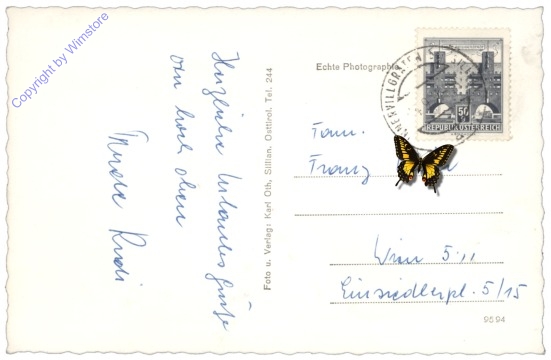 Copyright by Wimstore
Herzliche Urlaubsgrüße
von hoch oben
Rudi
Foto u. Verlag: Karl Oth, Sillian, Osttirol, Tel. 244
Echte Photographie
50
REPUBLIK ÖSTERREICH
Fam.
Franz
Wien 5.
Einsiedlerpl. 5/15
9594